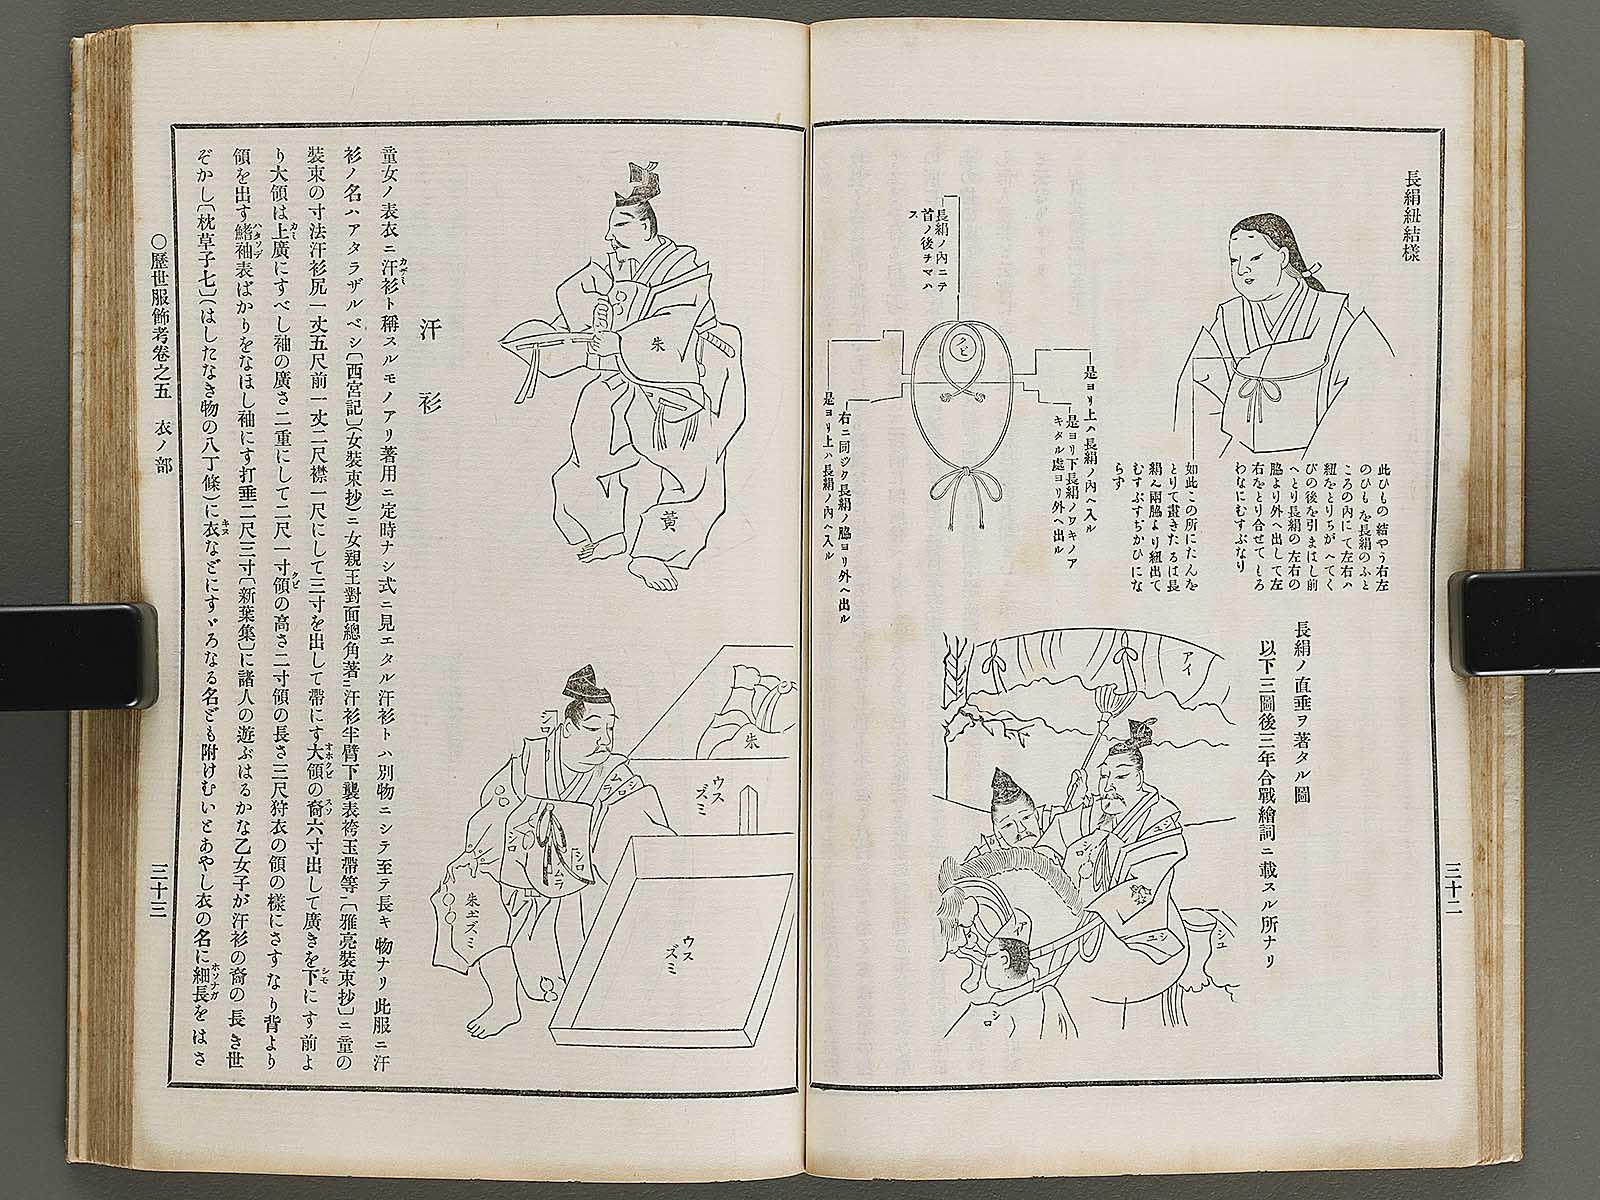 長絹紐結樣
此ひもの結やう右左
のひもを長絹のふと
ころの內にて左右ハ
紐をとりちがへてく
びの後を引まはし前
へとり長絹の左右の
脇より外へ出して左
右をとり合せてしろ
わなにむすぶなり
如此この所にたんを
とりて畫きたるは長
絹ん兩脇より紐出て
むすぶすぢかひにな
らず
長絹ノ內ニテ
首ノ後チマハ
ス
クビ
是ヨリ上ハ長絹ノ內ヘ入ル
是ヨリ下長絹ノワキノア
キタル處ヨリ外ヘ出ル
右ニ同ジク長絹ノ脇ヨリ外ヘ出ル
是ヨリ上ハ長絹ノ內ヘ入ル
長絹ノ直垂ヲ著タル圖
以下三圖後三年合戰繪詞ニ載スル所ナリ
アイ
シユ
シロ
シユ
シユ
シロ
三十二
朱
黃
朱
シロ
ウス
ズミ
ムラ
シロ
シロ
シロ
ムラ
朱土ズミ
ウス
ズミ
汗衫
童女ノ表衣ニ汗衫カザミト稱スルモノアリ著用ニ定時ナシ式ニ見エタル汗衫トハ別物ニシテ至テ長キ物ナリ此服ニ汗
衫ノ名ハアタラザルベシ〔西宮記〕(女裝束抄)ニ女親王對面總角著ニ汗衫半臂下襲表袴玉帶等ニ〔雅亮裝束抄〕ニ童の
裝束の寸法汗衫尻一丈五尺前一丈二尺襟一尺にして三寸を出して帶にす大領オホクビの裔スソ六寸出して廣きを下シモにす前よ
り大領は上カミ廣にすべし袖の廣さ二重にして二尺一寸領クビの高さ二寸領の長さ三尺狩衣の領の樣にさすなり背より
領を出す鰭袖ハタソデ表ばかりをなほし袖にす打垂二尺三寸〔新葉集〕に諸人の遊ぶはるかな乙女子が汗衫の裔の長き世
ぞかし〔枕草子七〕(はしたなき物の八丁條)に衣キヌなどにすゞろなる名ども附けむいとあやし衣の名に細長ホソナガをはさ
○歷世服飾考卷之五 衣ノ部
三十三